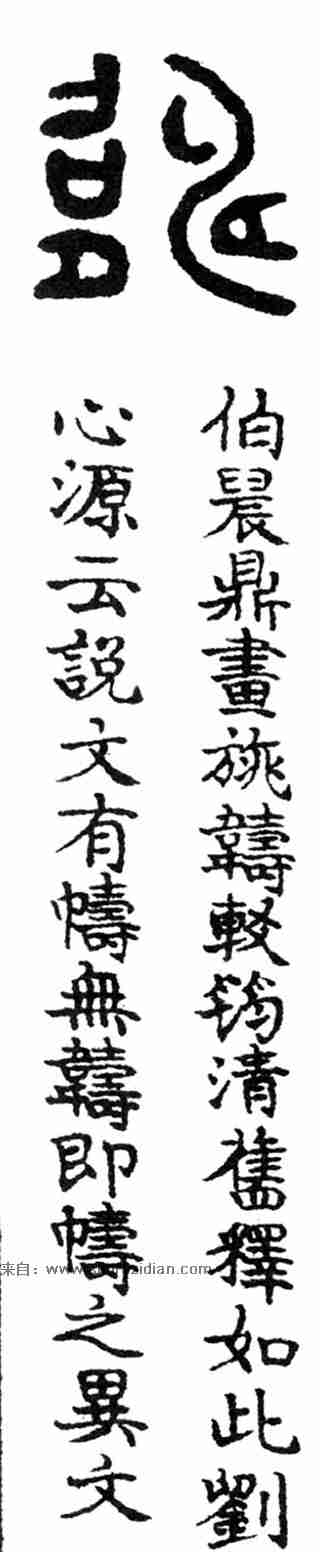 伯晨鼎畫旐較筠清舊釋如此劉
心源云說文有幬無即幬之異文
来自：www.shufazidian.com